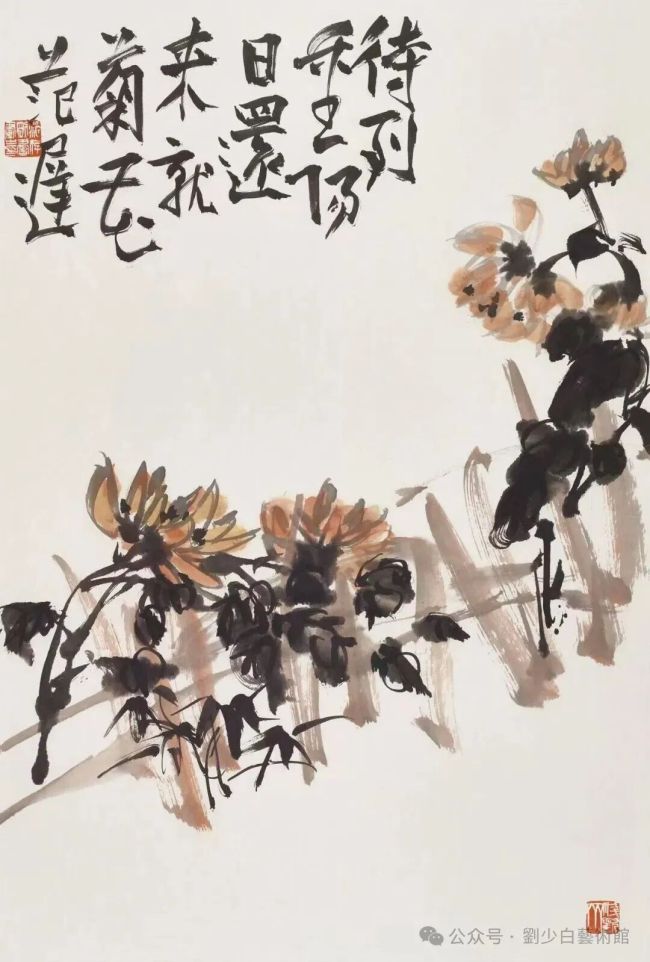 待到
重阳
日還
来就
菊花
范遲
公众号 · 劉少白藝術館